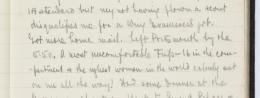 standard but my not having flown a Scout
disqualifies me for a very Examiners job.
Got more home mail. Left Portsmouth by the
5.50. A most uncomfortable trip - 16 in the com-
partment & the ugliest woman in the world calmly sat
on me all the way! Had some dinner at the